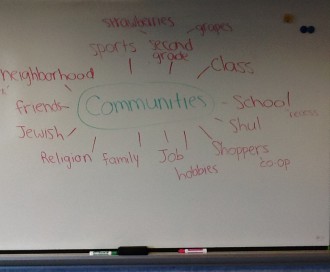 strawbarries
grapes
sports
second
grade
Class
neighborhood
friends
Communities
School
recess
Shul
Jewish
Religion
Family
Job
hobbies
Shoppers
co-op